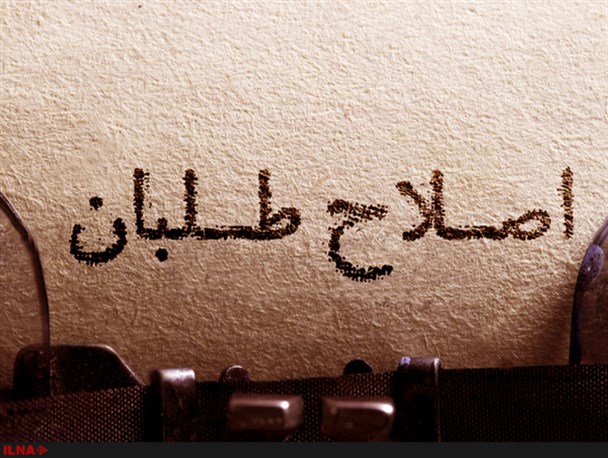 اصلاح طلبان
ILNA